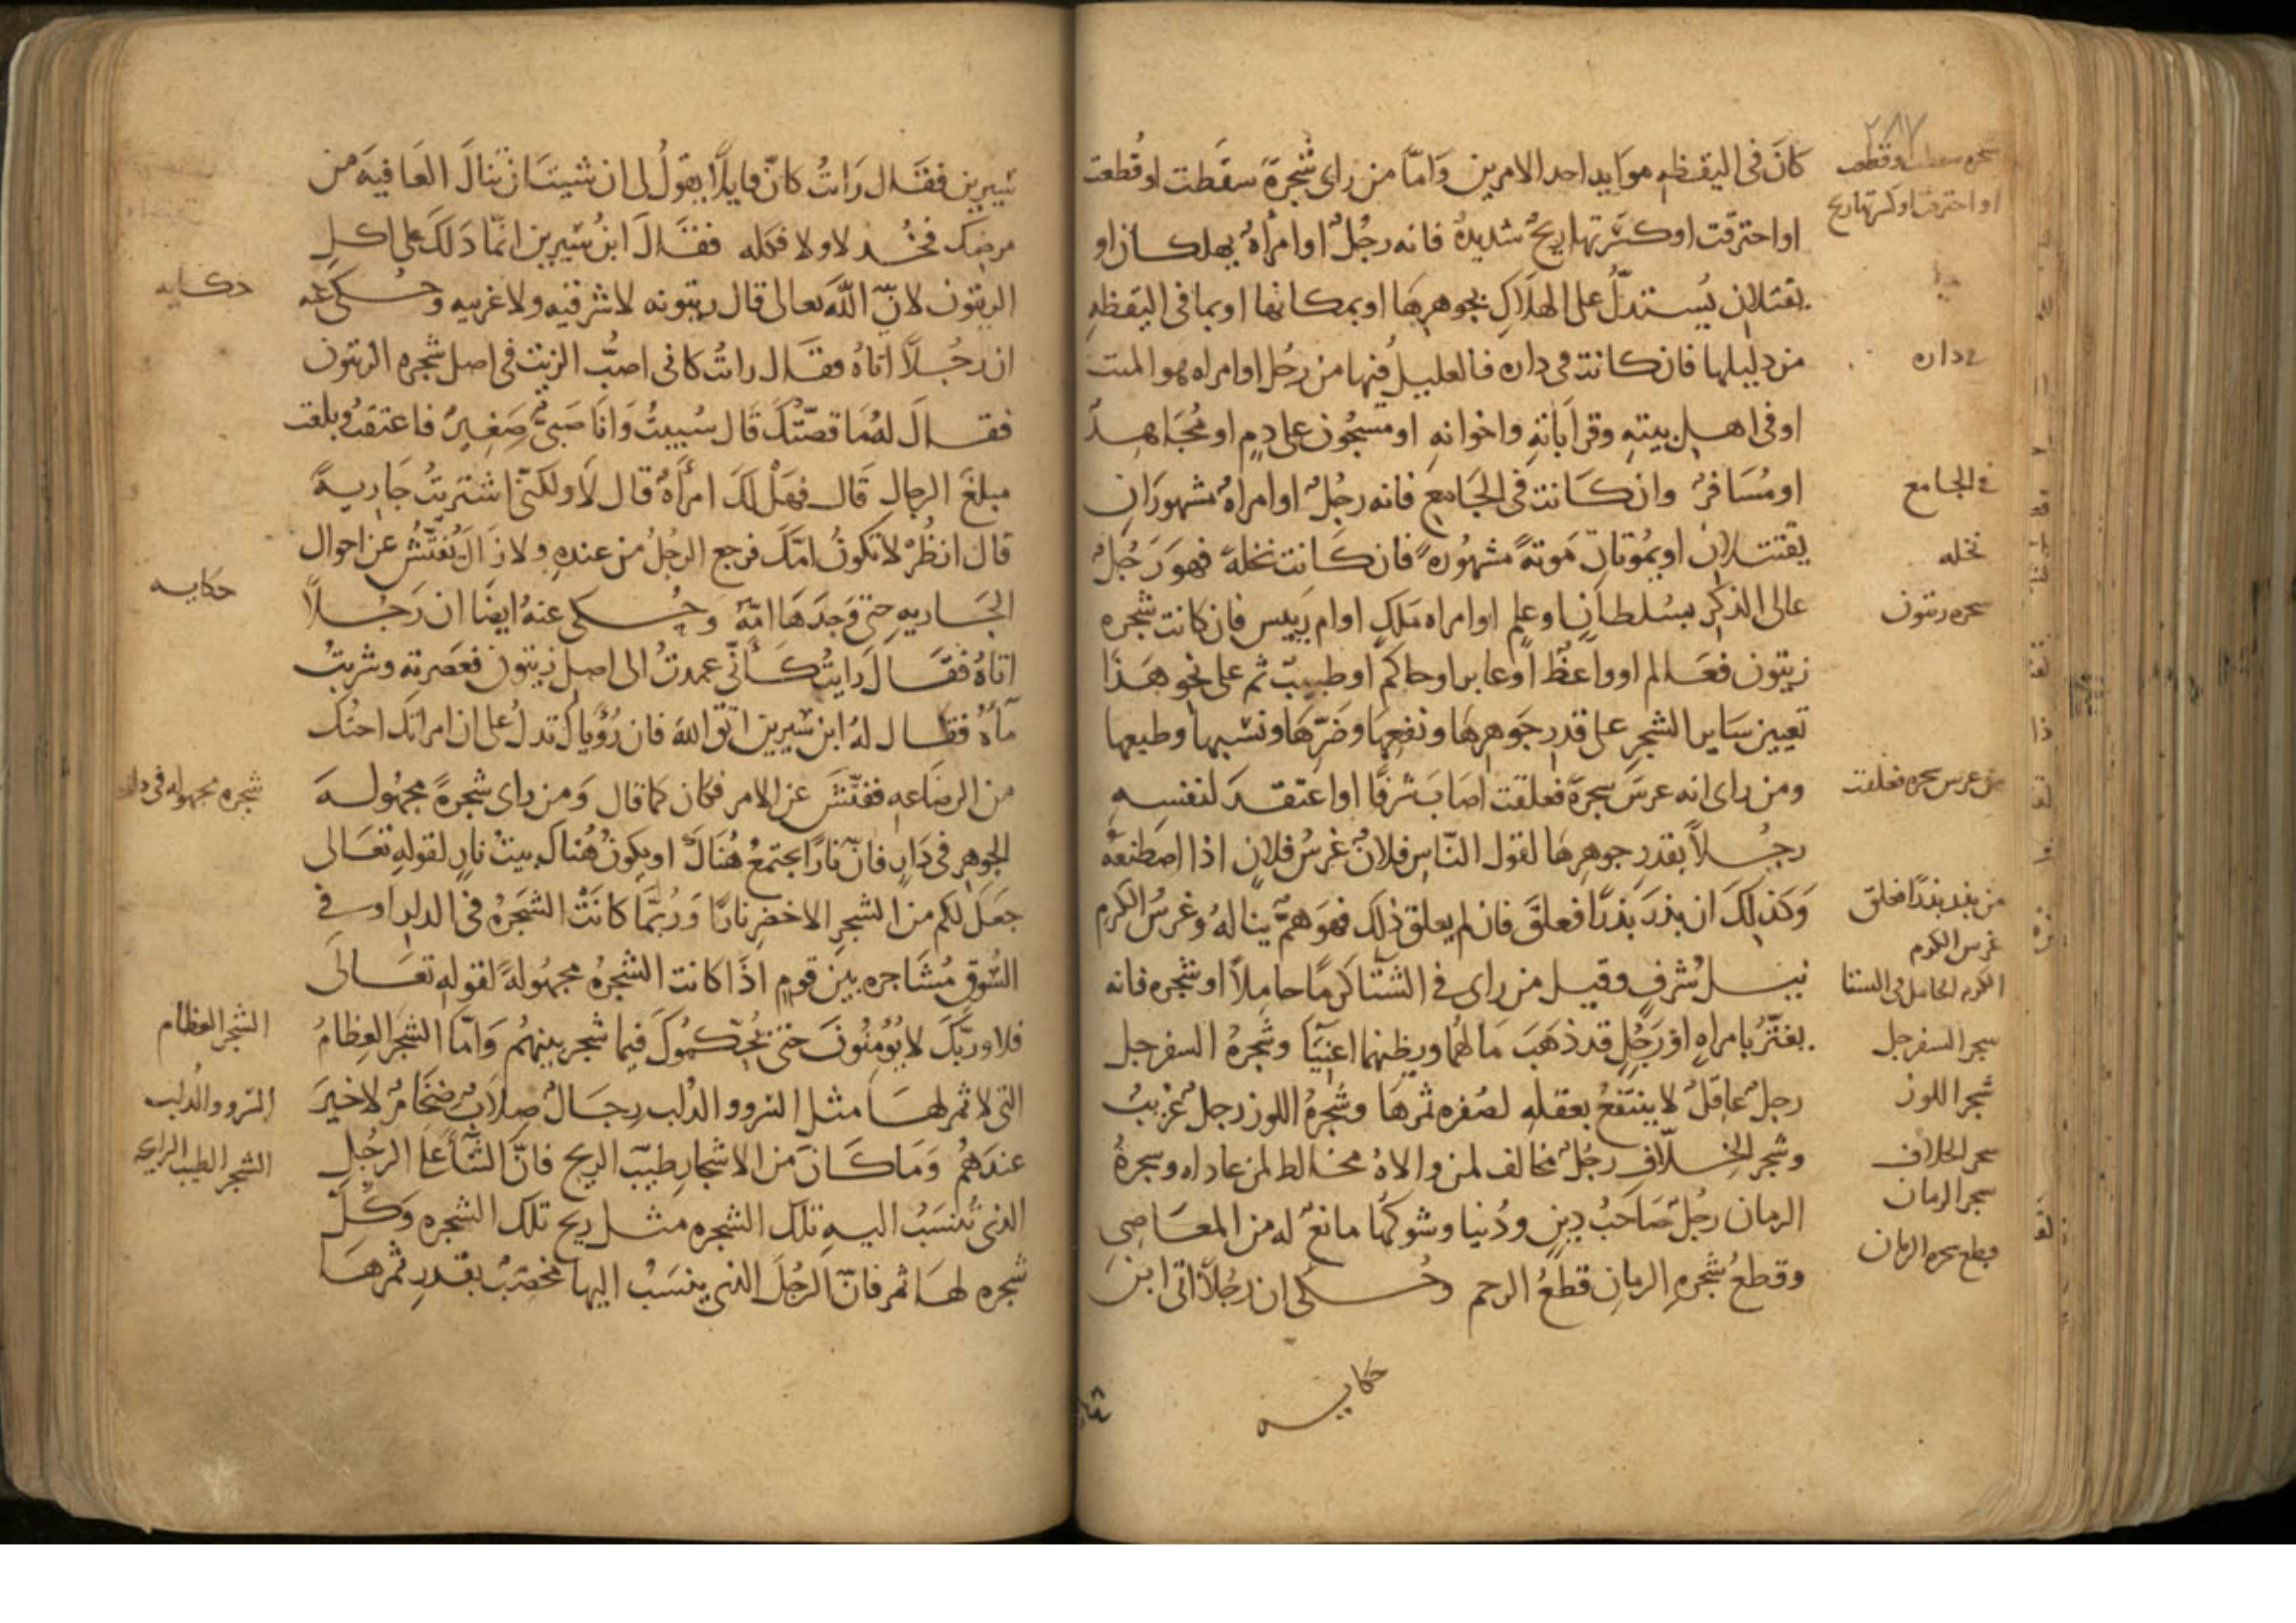 ٢٨٧
كان في اليقظه موايد احد الامرين واما من راى شجرة سقطت او قطعت
او احترقت او كسرتها ريح شديدة فانه رجل او امراة يهلكان او
يقتلان يستدل على الهلاك بجوهرها او بمكانها او بما في اليقظه
من دليلها فان كانت في داره فالعليل فيها من رجل او امراه هو الميت
او في اهل بيته وقراباته واخوانه او مسجون على دم او مجاهد
او مسافر وان كانت في الجامع فانه رجل او امراة مشهوران
يقتتلان او يموتان موتة مشهورة فان كانت نخلة فهو رجل
عالى الذكر بسلطان او علم او امراه ملك او ام رييس فان كانت شجره
زيتون فعالم او واعظ او عابر او حاكم او طبيب ثم على نحو هذا
تعيين ساير الشجر على قدر جوهرها ونفعها وضرها ونسبها وطبعها
ومن راى انه غرس شجرة فعلقت اصاب شرفا او اعتقد لنفسه
رجلا بقدر جوهرها لقول الناس فلان غرس فلان اذا اصطنعه
وكذلك ان بذر بذرا فعلق فان لم يعلق ذلك فهو هم يناله وغرس الكرم
نيل شرف وقيل من راى في الشتا كرما حاملا او شجره فانه
يغتر بامراه او رجل قد ذهب مالهما ويظنهما اغنيا وشجرة السفرجل
رجل عاقل لا ينتفع بعقله لصفره ثمرها وشجرة اللوز رجل غريب
وشجر الخلاف رجل مخالف لمن والاه مخالط لمن عاداه وشجرة
الرمان رجل صاحب دين ودنيا وشوكها مانع له من المعاصى
وقطع شجره الرمان قطع الرحم وحكى ان رجلا اتى ابن
شجره سقطت او قطعت
او احترقت او كسرتها ريح
في داره
في الجامع
نخله
شجره زيتون
من غرس شجره فعلقت
من بذر بذرا فعلق
غرس الكرم
الكرم الحامل في الشتا
شجر السفرجل
شجر اللوز
شجر الخلاف
شجر الرمان
قطع شجره الرمان
حكايه
سيرين فقال رات كان قايلا يقول لى ان شيت ان تنال العافيه من
مرضك فخذ لا ولا فكله فقال ابن سيرين انما دلك على اكل
الزيتون لان الله تعالى قال زيتونه لا شرقيه ولا غربيه وحكى عنه
ان رجلا اتاه فقال رات كانى اصب الزيت في اصل شجره الزيتون
فقال له ما قصتك قال سبيت وانا صبى صغير فاعتقت وبلغت
مبلغ الرجال قال فهل لك امرأة قال لا ولكنى اشتريت جارية
قال انظر لا تكون امك فرجع الرجل من عنده ولا زال يفتش عن احوال
الجاريه حتى وجدها امه وحكى عنه ايضا ان رجلا
اتاه فقال رايت كأنى عمدت الى اصل زيتون فعصرته وشربت
مآه فقال له ابن سيرين اتق الله فان رؤياك تدل على ان امراتك اختك
من الرضاعه ففتش عن الامر فكان كما قال ومن راى شجرة مجهوله
الجوهر في دار فان نارا تجتمع هناك او يكون هناك بيت نار لقوله تعالى
جعل لكم من الشجر الاخضر نارا وربما كانت الشجرة في الدار او في
السوق مشاجره بين قوم اذا كانت الشجرة مجهولة لقوله تعالى
فلا وربك لا يؤمنون حتى يحكموك فيما شجر بينهم واما الشجر العظام
التى لا ثمر لها مثل السرو والدلب رجال صلاب ضخام لا خير
عندهم وما كان من الاشجار طيب الريح فان الثنآ على الرجل
الذى تنسب اليه تلك الشجره مثل ريح تلك الشجره وكل
شجره لها ثمر فان الرجل الذى ينسب اليها مخصب بقدر ثمرها
حكايه
حكايه
شجره مجهوله في دار
الشجر العظام
السرو والدلب
الشجر الطيب الرايحه